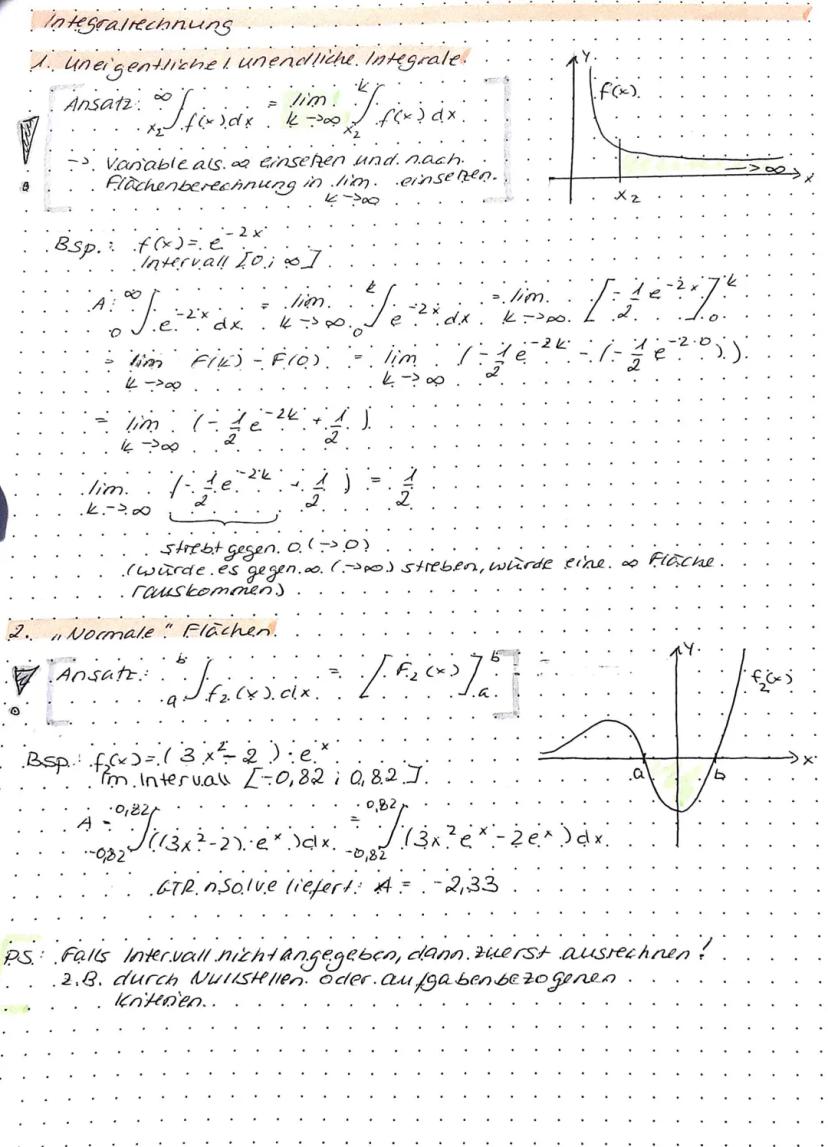 Integralrechnung
1. Uneigentliche / unendliche Integrale
Ansatz: ∞ ∫ x₂ f(x) dx = lim k→∞ k ∫ x₂ f(x) dx
-> Variable als ∞ einsetzen und nach
Flächenberechnung in lim k→∞ einsetzen.
y
f(x)
->∞
x
x₂
Bsp.: f(x) = e^-2x
Intervall [0; ∞]
A: ∞ ∫ 0 e^-2x dx = lim k→∞ k ∫ 0 e^-2x dx = lim k→∞ [-1/2 e^-2x] k 0
= lim k→∞ F(k) - F(0) = lim k→∞ (-1/2 e^-2k - (-1/2 e^-2·0))
= lim k→∞ (-1/2 e^-2k + 1/2)
lim k→∞ (-1/2 e^-2k + 1/2) = 1/2
strebt gegen 0 (->0)
(würde es gegen ∞ (->∞) streben, würde eine ∞ Fläche
rauskommen)
2. „Normale" Flächen
Ansatz: b ∫ a f₂(x) dx = [F₂(x)] b a
y
f₂(x)
x
a
b
Bsp.: f₂(x) = (3x² - 2) · e^x
Im Intervall [-0,82 ; 0,82]
A = 0,82 ∫ -0,82 ((3x² - 2) · e^x) dx = 0,82 ∫ -0,82 (3x² e^x - 2e^x) dx
GTR nSolve liefert: A = -2,33
PS: Falls Intervall nicht angegeben, dann zuerst ausrechnen!
z.B. durch Nullstellen oder aufgabenbezogenen
Kriterien.